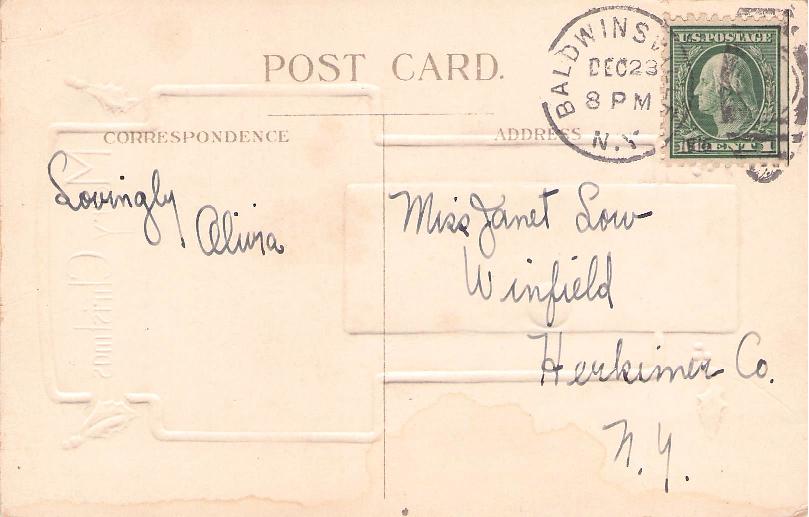 POST CARD.
BALDWINSV
DEC 23
8 PM
N.Y.
U.S. POSTAGE
1 CENT 1
CORRESPONDENCE
ADDRESS
Lovingly
Alivia
Miss Janet Low
Winfield
Herkimer Co.
N.Y.
Christmas